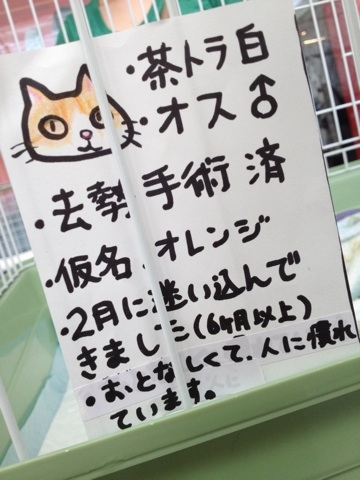 ・茶トラ白
・オス♂
・去勢手術済
・仮名、オレンジ
・2月に迷い込んで
きました(6ヶ月以上)
・おとなしくて、人に慣れ
ています。